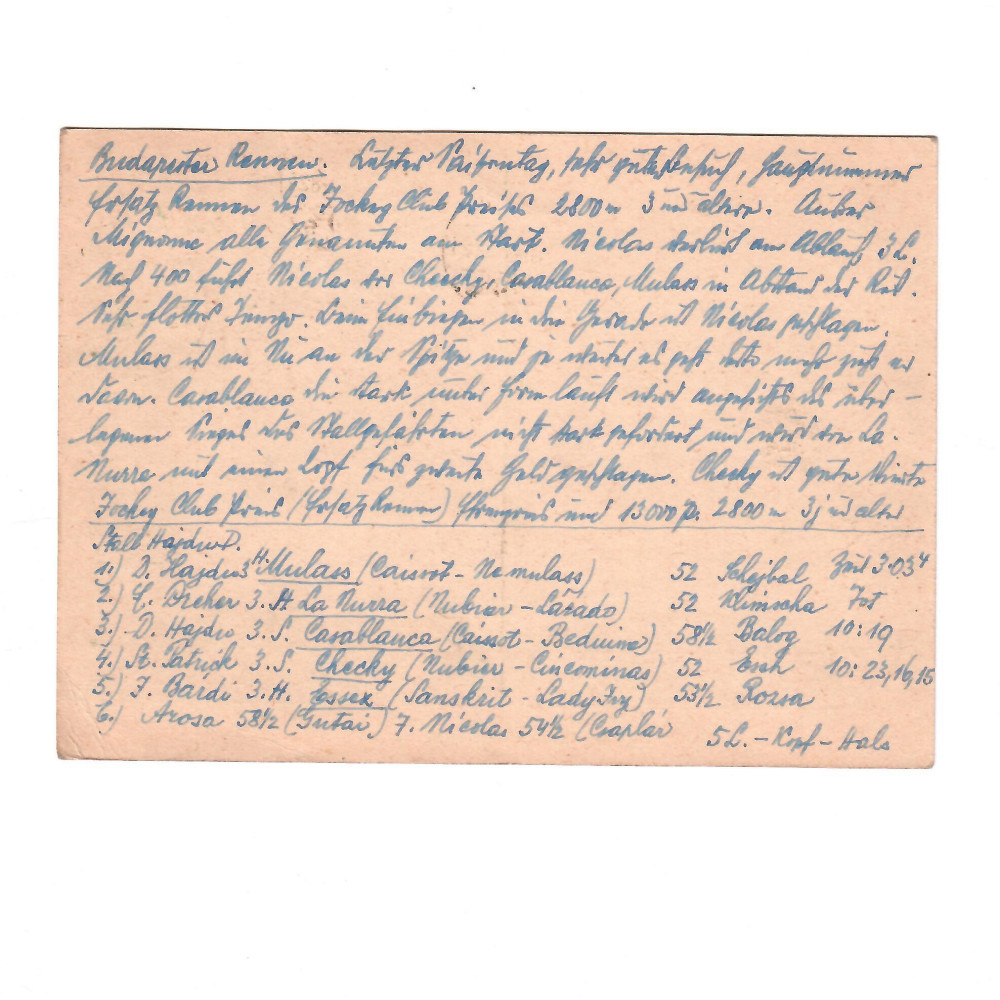 Budapester Rennen. Letzter Saisontag, sehr guter Besuch, Hauptnummer
Ersatz Rennen des Jockey Club Preises 2800 m 3 und ältere. Außer
Mignonne alle Genannten am Start. Nicolas verliert am Ablauf 3 L.
Nach 400 führt Nicolas vor Checky, Casablanca, Mulass in Abstand der Rest.
Sehr flottes Tempo. Beim Einbiegen in die Gerade ist Nicolas geschlagen.
Mulass ist im Nu an der Spitze und je weiter es geht desto mehr zieht er
davon. Casablanca die stark unter Form läuft wird angesichts des über-
legenen Sieges des Stallgefährten nicht stark gefordert und wird von La
Nurra mit einem Kopf fürs zweite Geld geschlagen. Checky ist gute Vierte
Jockey Club Preis (Ersatz Rennen) Ehrenpreis und 13000 P. 2800 m 3j und älter
Stall Hajdu D.
1.) D. Hajdu 3 H. Mulass (Caissot - Nemulass) 52 Schejbal Zeit 3.03⁴
2.) Dreher 3. H. La Nurra (Nubier - Lačado) 52 Klimscha Tot
3.) D. Hajdu 3. S. Casablanca (Caissot - Beduine) 58½ Balog 10:19
4.) St. Patrick 3. S. Checky (Nubier - Cincominas) 52 Esch 10: 23, 16, 15
5.) J. Bardi 3. H. Essex (Sanskrit - Lady Ivy) 53½ Rossa
6.) Arosa 58½ (Gutai) 7. Nicolas 54½ (Csaplár
5 L. - Kopf - Hals